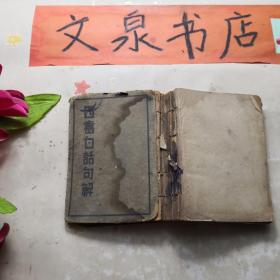 文泉书店
四書白話句解